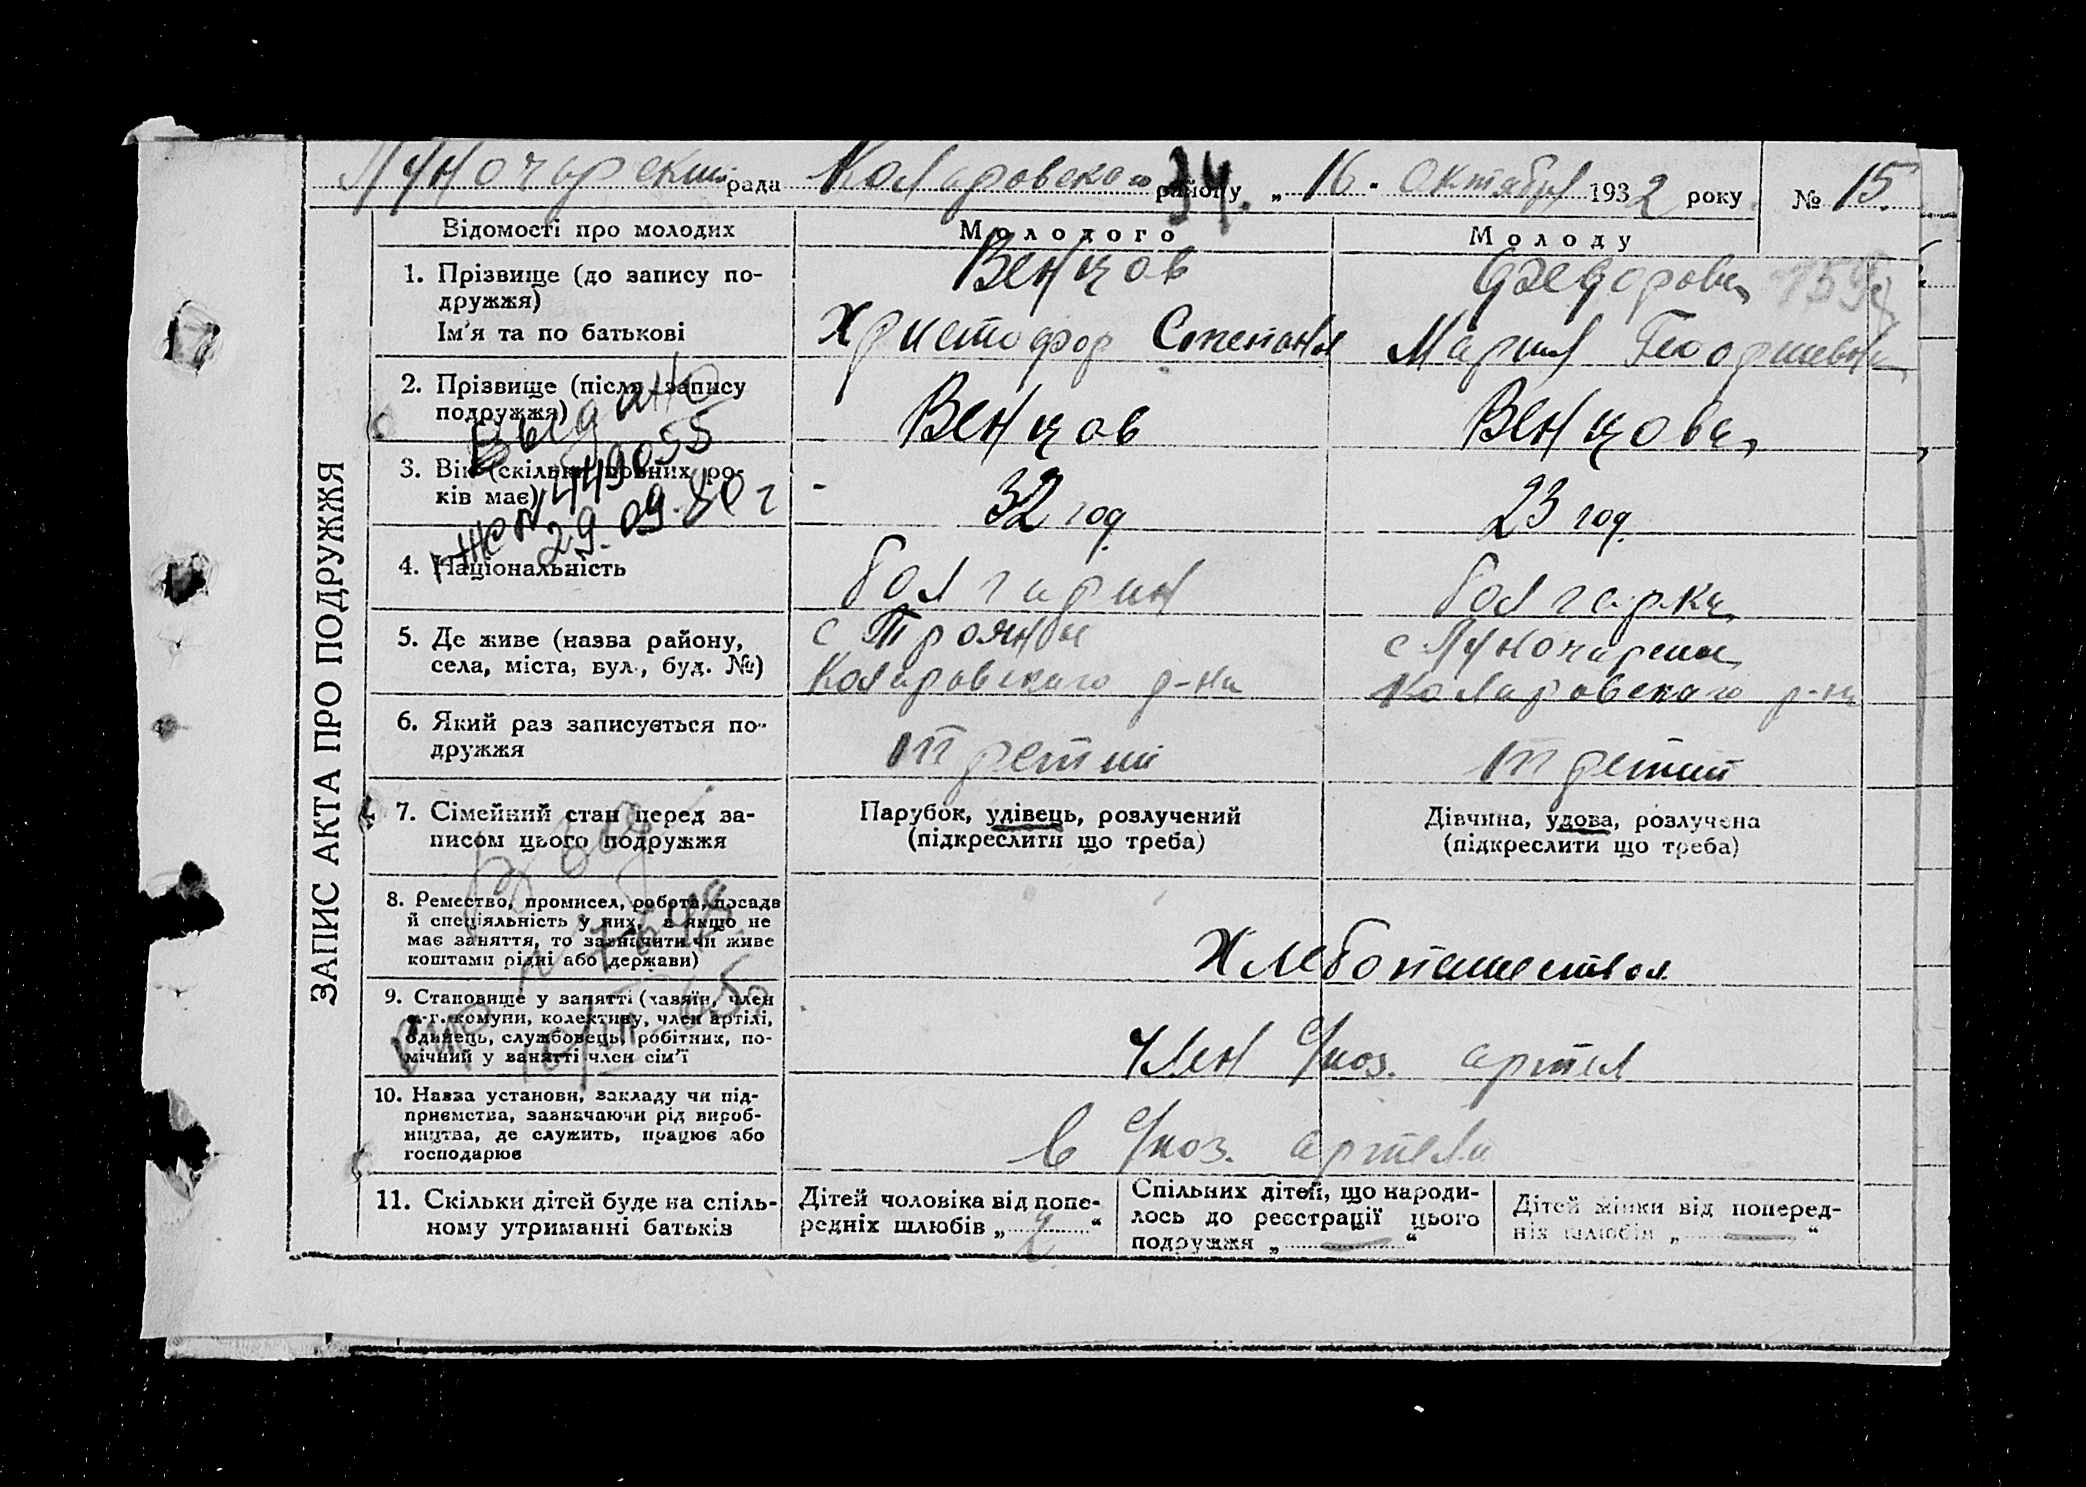 Луночарский рада Коларовского району „ 16. октября 1932 року № 15.
34.
Відомості про молодих
Молодого
Молоду
1. Прізвище (до запису по-
дружжя)
Ім'я та по батькові
Венцов
Христофор Степанов
Федорова
Мария Георгиевна
2. Прізвище (після запису
подружжя)
Венцов
Венцова
3. Вік (скільки повних ро-
ків має)
32 год
23 год
Выдано
449055
29.09.80 г
4. Національність
болгарин
болгарка
5. Де живе (назва району,
села, міста, вул., буд. №)
с Трояны
Коларовского р-на
с Луночарска
Коларовского р-на
6. Який раз записується по-
дружжя
третий
третий
7. Сімейний стан перед за-
писом цього подружжя
Парубок, удівець, розлучений
(підкреслити що треба)
Дівчина, удова, розлучена
(підкреслити що треба)
8. Ремество, промисел, робота, посада
й спеціяльність у них, а якщо не
має заняття, то зазначити чи живе
коштами рідні або держави)
Хлебопашества
9. Становище у занятті (хазяїн, член
с.-г. комуни, колективу, член артілі,
одинець, службовець, робітник, по-
мічний у занятті член сім'ї
член с/хоз. артел
10. Назва установи, закладу чи під-
приємства, зазначаючи рід вироб-
ництва, де служить, працює або
господарює
в с/хоз. артели
11. Скільки дітей буде на спіль-
ному утриманні батьків
Дітей чоловіка від попе-
редніх шлюбів „ 2 “
Спільних дітей, що народи-
лось до реєстрації цього
подружжя „ — “
Дітей жінки від поперед-
ніх шлюбів „ — “
ЗАПИС АКТА ПРО ПОДРУЖЖЯ